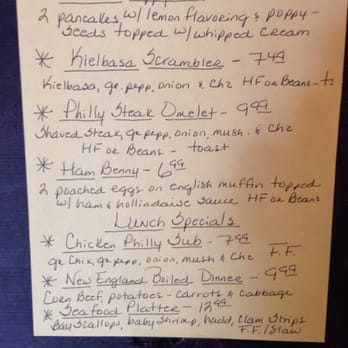 2 pancakes w/lemon flavoring & poppy-
seeds topped w/whipped cream
* Kielbasa Scrambler - 7.49
Kielbasa, gr. pepp, onion & chz HF or Beans -
* Philly Steak Omelet - 9.99
Shaved steak, gr. pepp, onion, mush. & chz
HF or Beans - toast
* Ham Benny - 6.99
2 poached eggs on english muffin topped
w/ ham & hollindaise sauce HF or Beans
Lunch Specials
* Chicken Philly Sub - 7.99
gr chix, gr. pepp, onion, mush & chz F.F.
* New England Boiled Dinner - 9.99
Corn Beef, potatoes - carrots & cabbage
* Seafood Platter - 12.99
Bay Scallops, baby shrimp, hadd, clam strips
F.F./Slaw